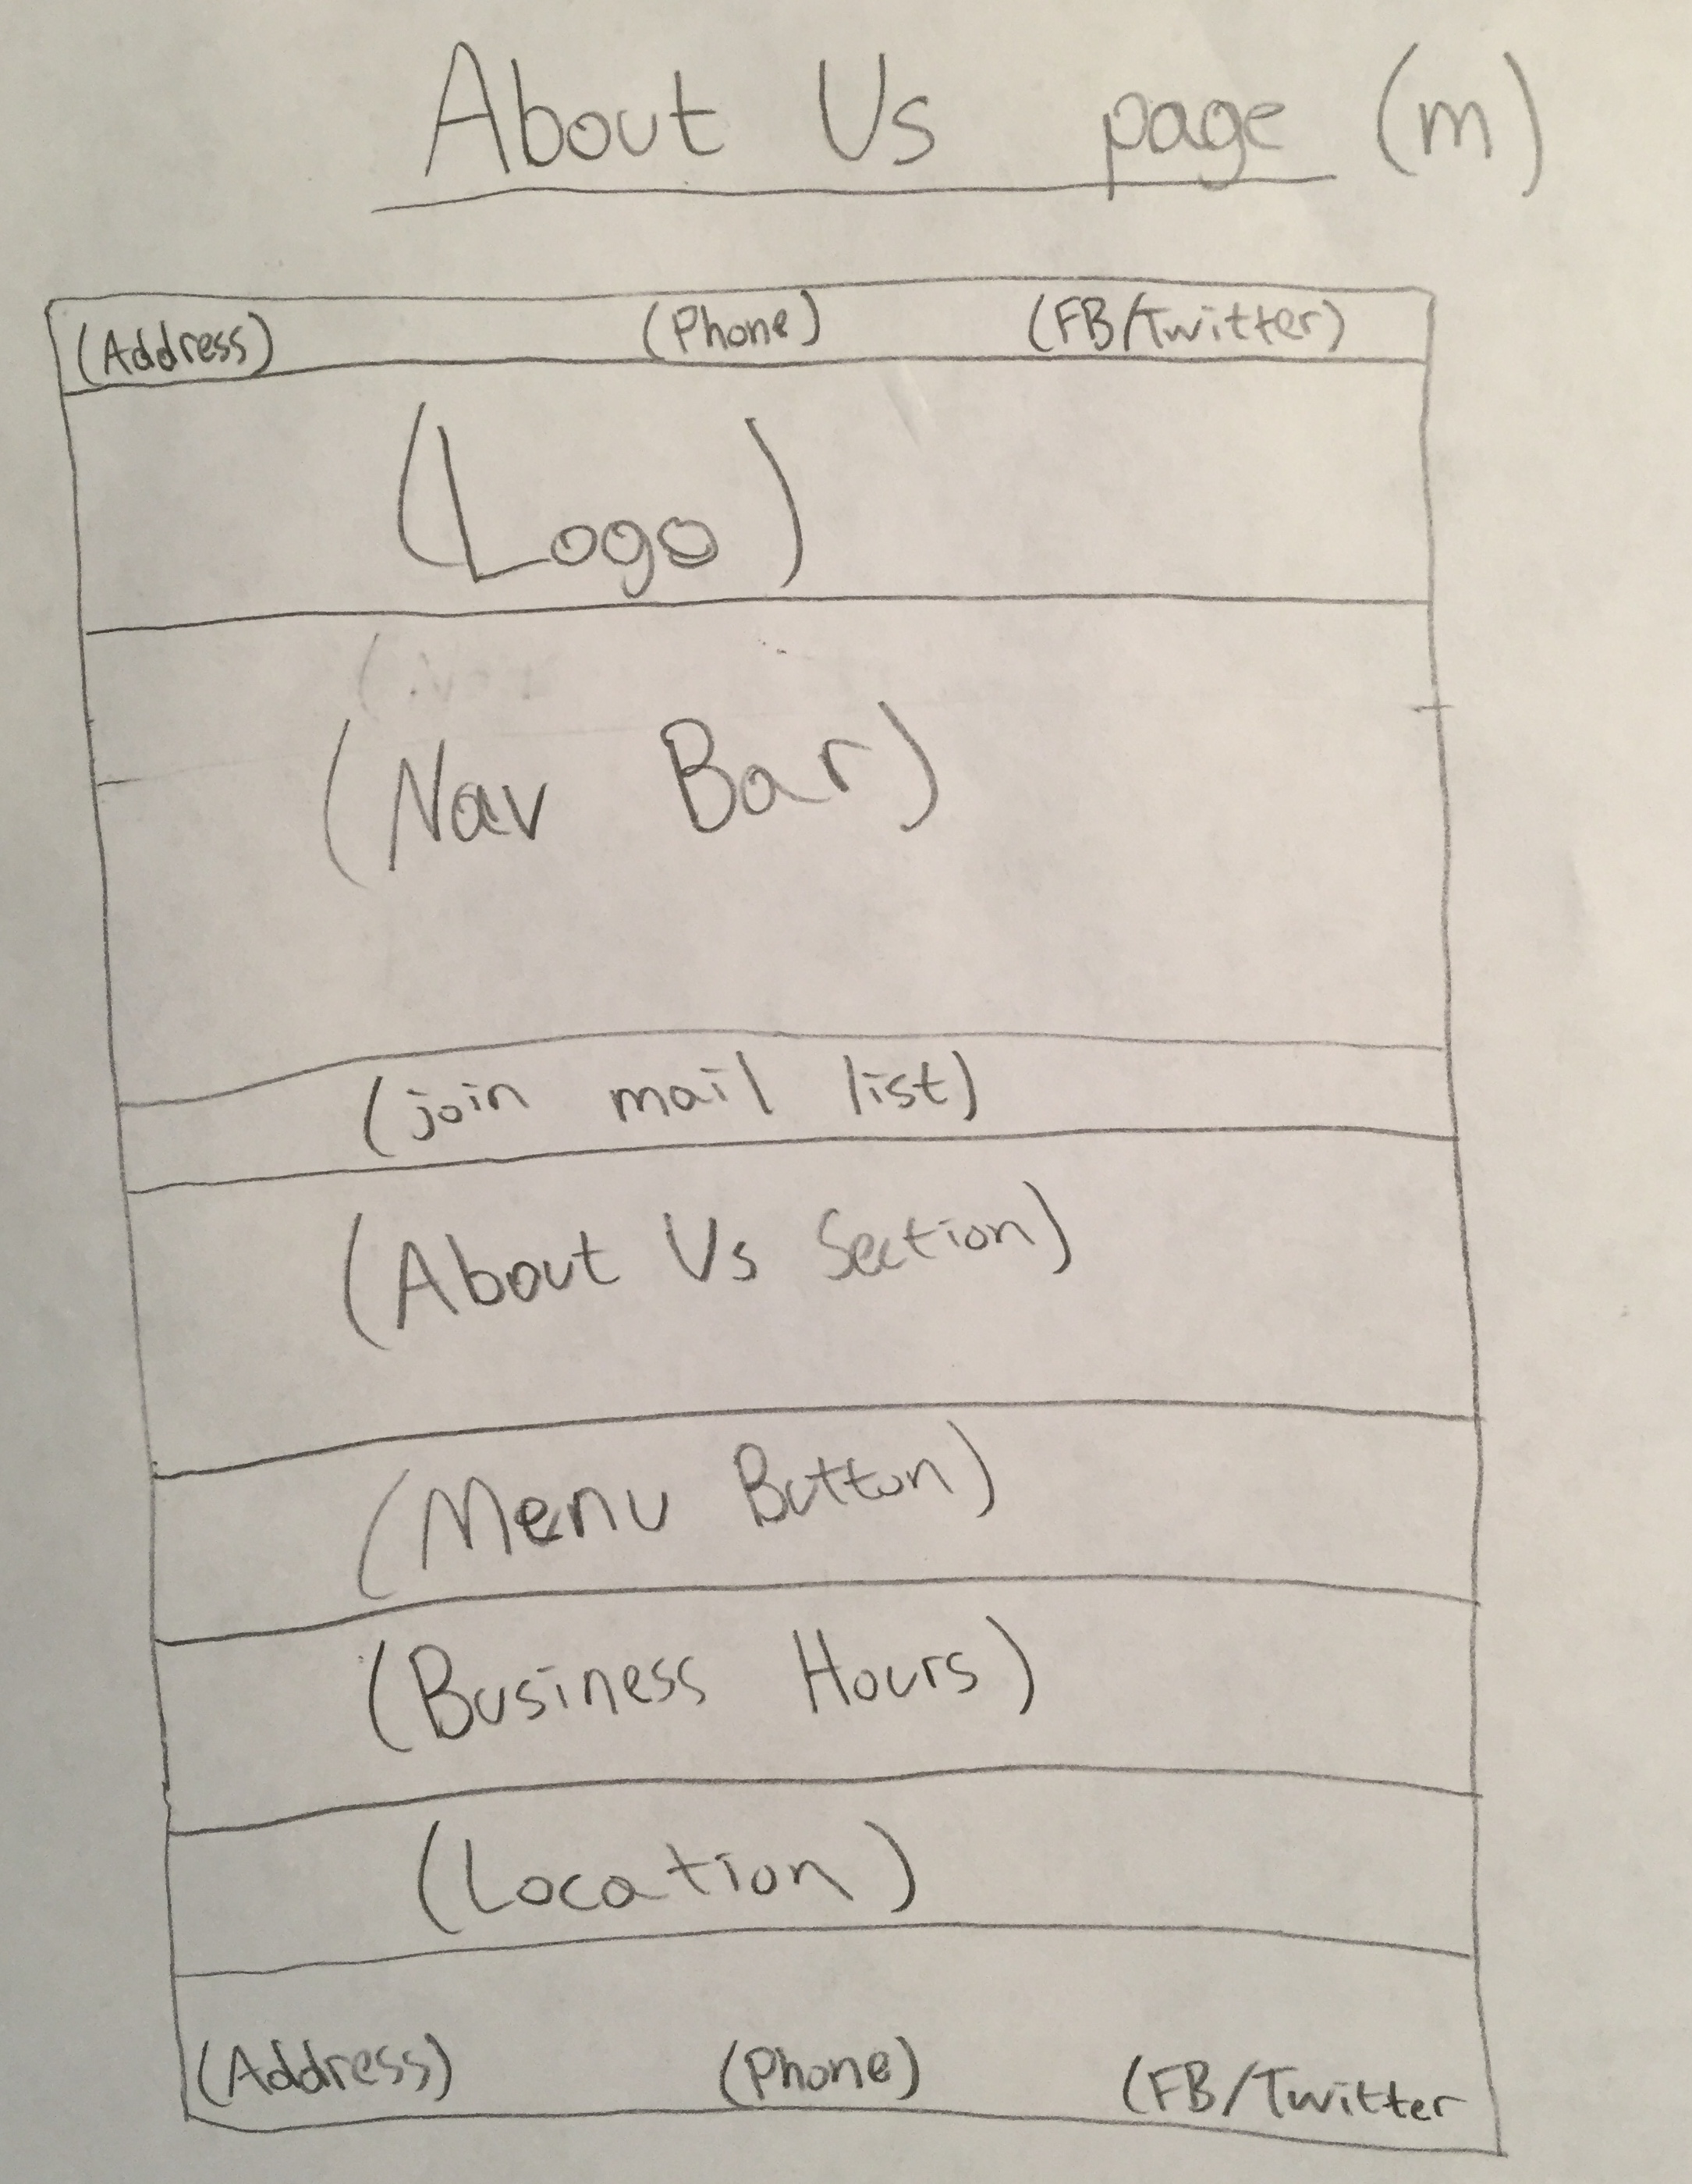 About Us page (m)
(Address) (Phone) (FB/Twitter)
(Logo)
(Nav Bar)
(join mail list)
(About Us Section)
(Menu Button)
(Business Hours)
(Location)
(Address) (Phone) (FB/Twitter